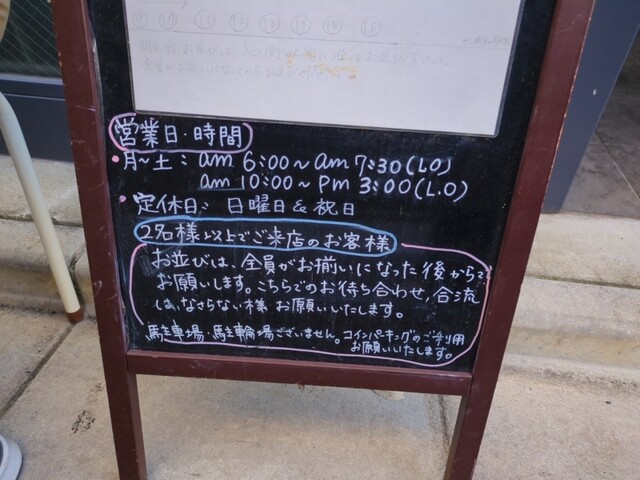 ⑨ ⑩ ⑪ ⑫ ⑬ ⑭ ⑮ ⑯
営業日・時間
・月〜土: am 6:00〜am 7:30(LO)
am 10:00〜pm 3:00(L.O)
・定休日: 日曜日&祝日
2名様以上でご来店のお客様
お並びは、全員がお揃いになった後からで
お願いします。こちらでのお待ち合わせ、合流
は、なさらない様お願いいたします。
駐車場・駐輪場ございません。コインパーキングのご利用
お願いいたします。